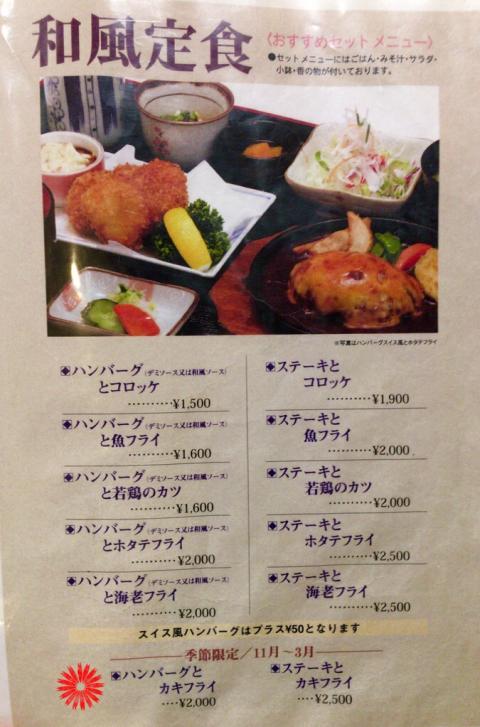 和風定食
〈おすすめセットメニュー〉
●セットメニューにはごはん・みそ汁・サラダ・
小鉢・香の物が付いております。
※写真はハンバーグスイス風とホタテフライ
ハンバーグ(デミソース又は和風ソース)
とコロッケ
‥‥‥‥¥1,500
ハンバーグ(デミソース又は和風ソース)
と魚フライ
‥‥‥‥¥1,600
ハンバーグ(デミソース又は和風ソース)
と若鶏のカツ
‥‥‥‥¥1,600
ハンバーグ(デミソース又は和風ソース)
とホタテフライ
‥‥‥‥¥2,000
ハンバーグ(デミソース又は和風ソース)
と海老フライ
‥‥‥‥¥2,000
ステーキと
コロッケ
‥‥‥‥¥1,900
ステーキと
魚フライ
‥‥‥‥¥2,000
ステーキと
若鶏のカツ
‥‥‥‥¥2,000
ステーキと
ホタテフライ
‥‥‥‥¥2,500
ステーキと
海老フライ
‥‥‥‥¥2,500
スイス風ハンバーグはプラス¥50となります
季節限定/11月~3月
ハンバーグと
カキフライ
‥‥¥2,000
ステーキと
カキフライ
‥‥¥2,500